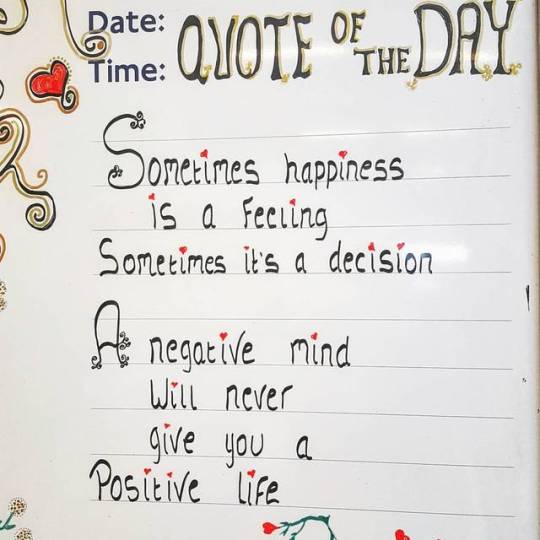 Date:
Time:
QUOTE OF THE DAY
Sometimes happiness
is a feeling
Sometimes it's a decision
A negative mind
will never
give you a
Positive life